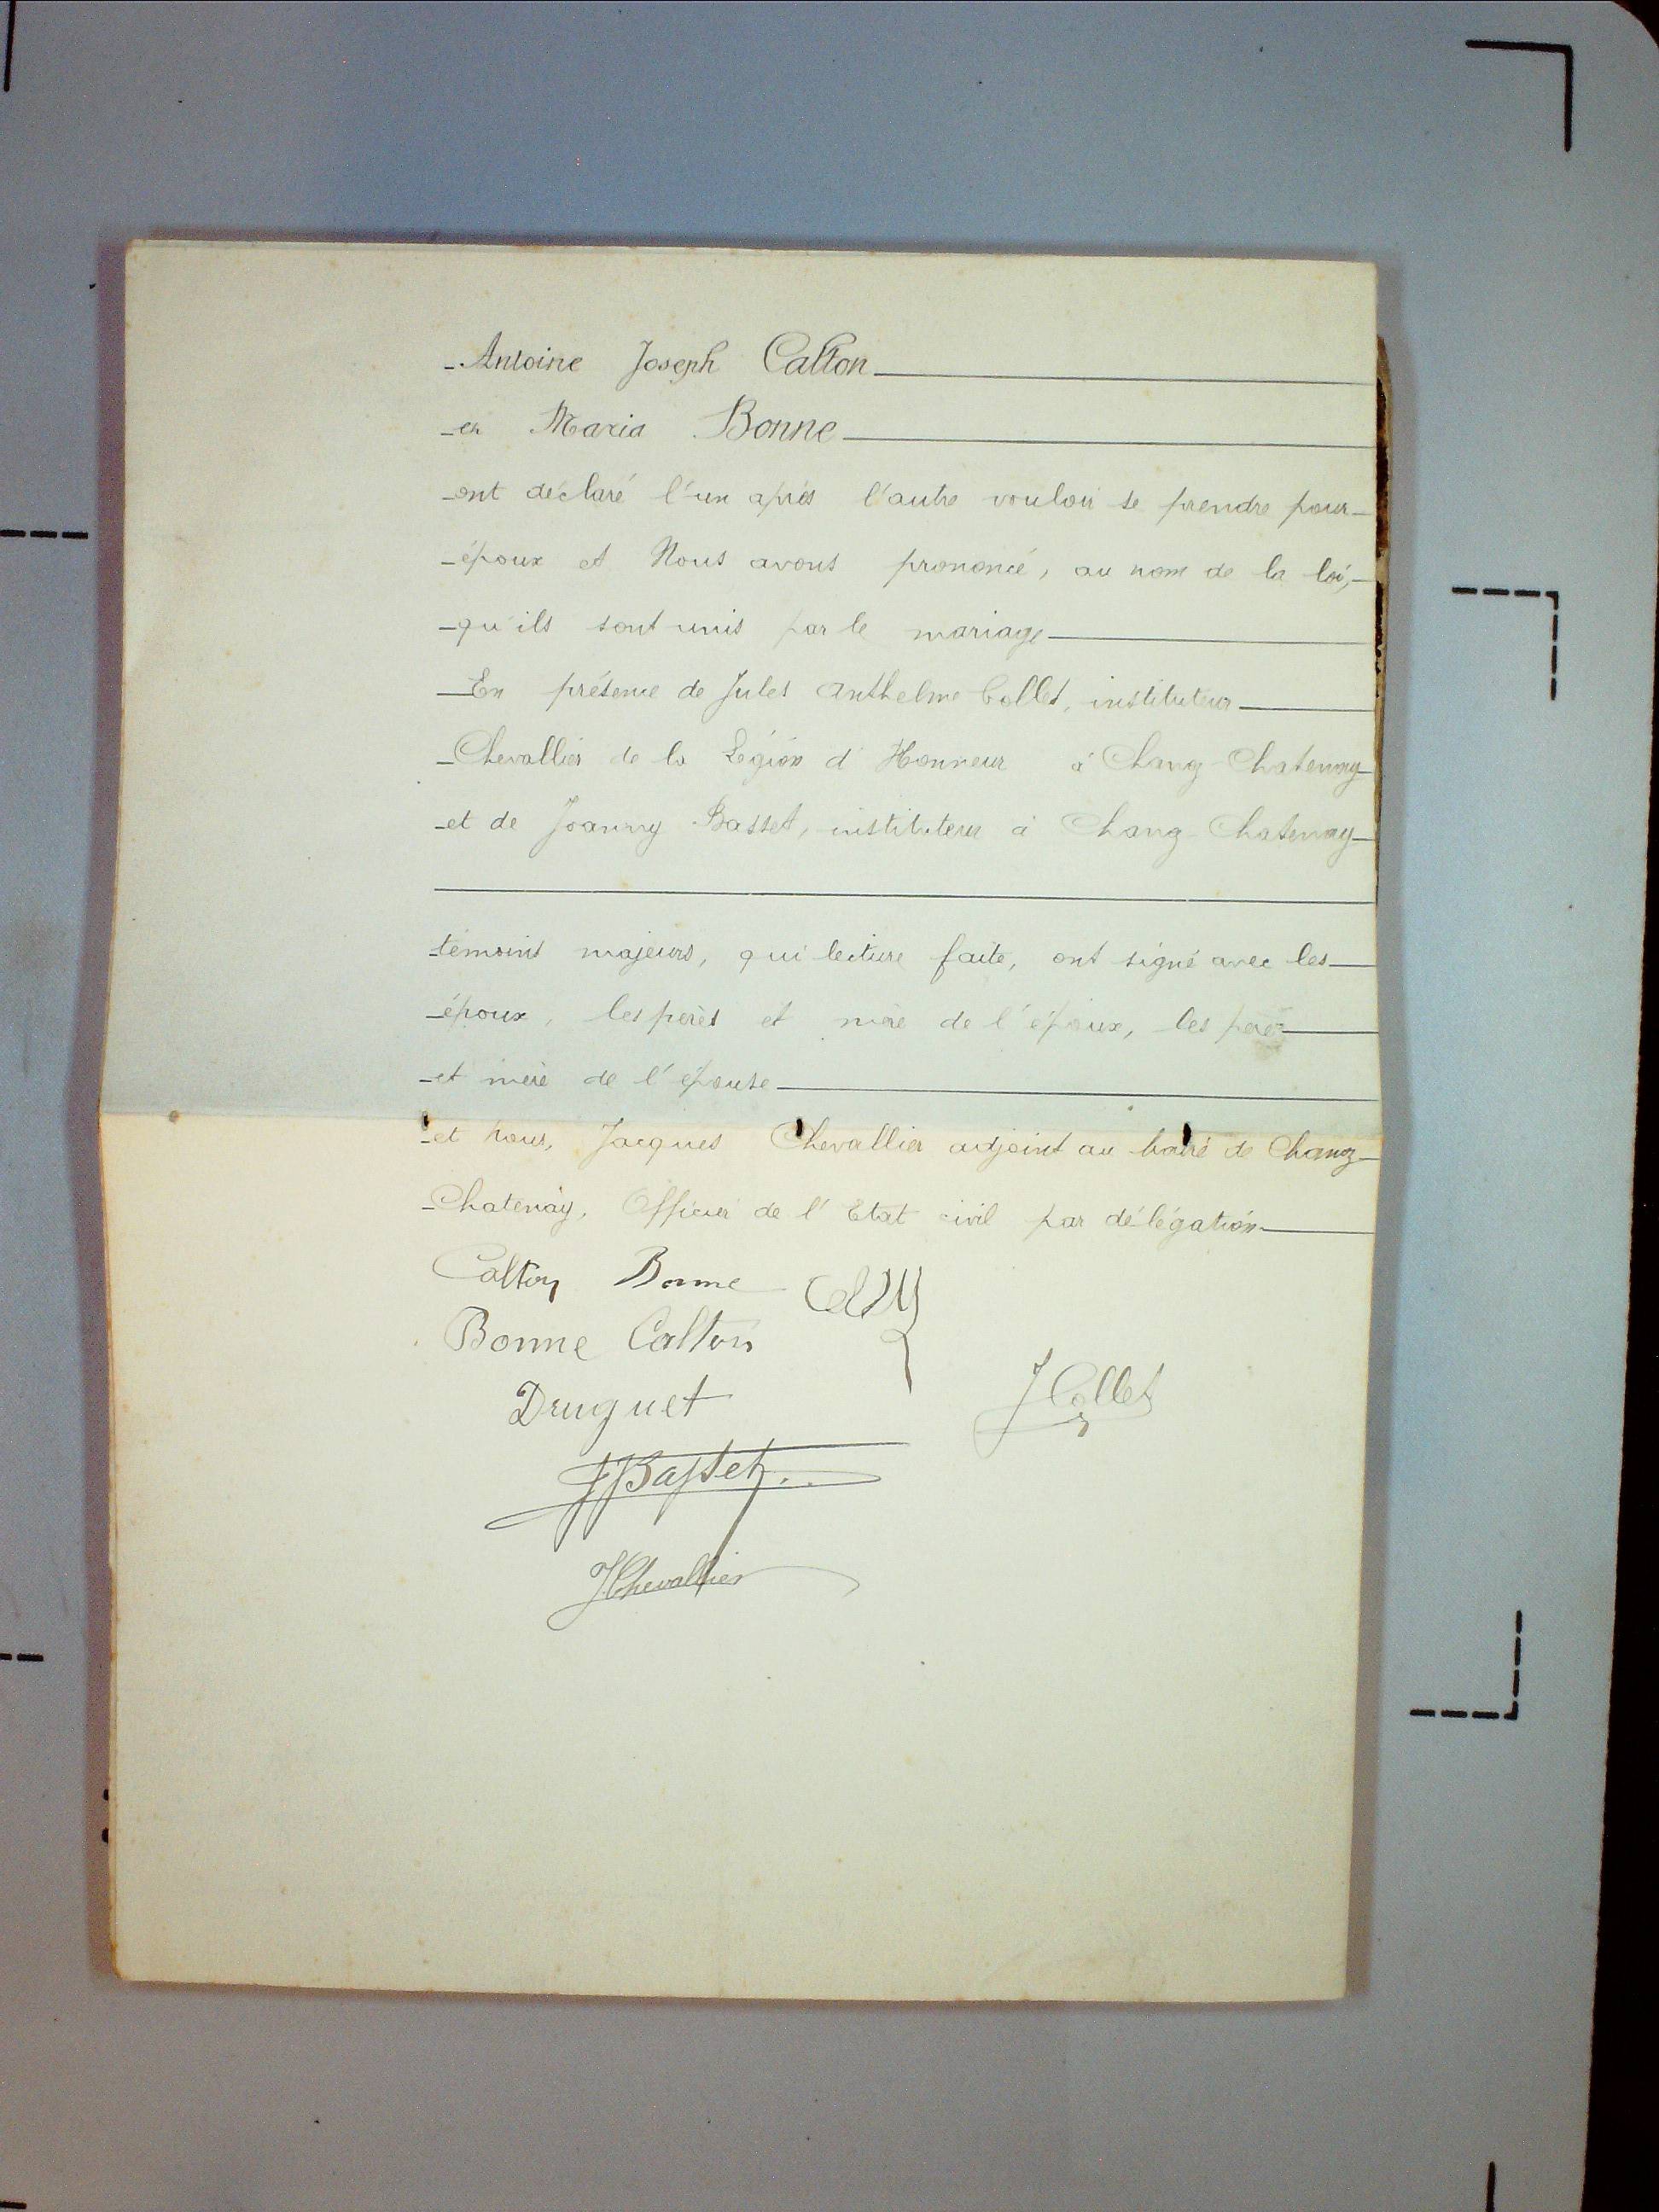 Antoine Joseph Calton
et Maria Bonne
ont déclaré l'un après l'autre vouloir se prendre pour
époux et Nous avons prononcé, au nom de la loi,
qu'ils sont unis par le mariage
En présence de Jules Anthelme Collet, instituteur
Chevallier de la Légion d'Honneur à Chanoz-Chatenay
et de Joanny Basset, instituteur à Chanoz-Chatenay
témoins majeurs, qui lecture faite, ont signé avec les
époux, les pères et mère de l'époux, les père
et mère de l'épouse
et nous, Jacques Chevallier adjoint au maire de Chanoz-
Chatenay, Officier de l'Etat civil par délégation
Calton Bonne
Bonne Calton
Druguet
J Collet
J Basset
J Chevallier